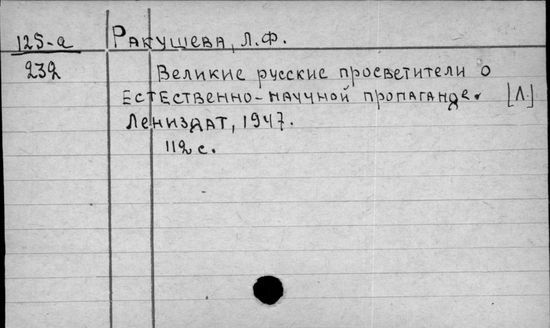 125-а Ракушева, Л.Ф.
232 Великие русские просветители о
естественно-научной пропаганде. [Л.]
Лениздат, 1947.
112 с.